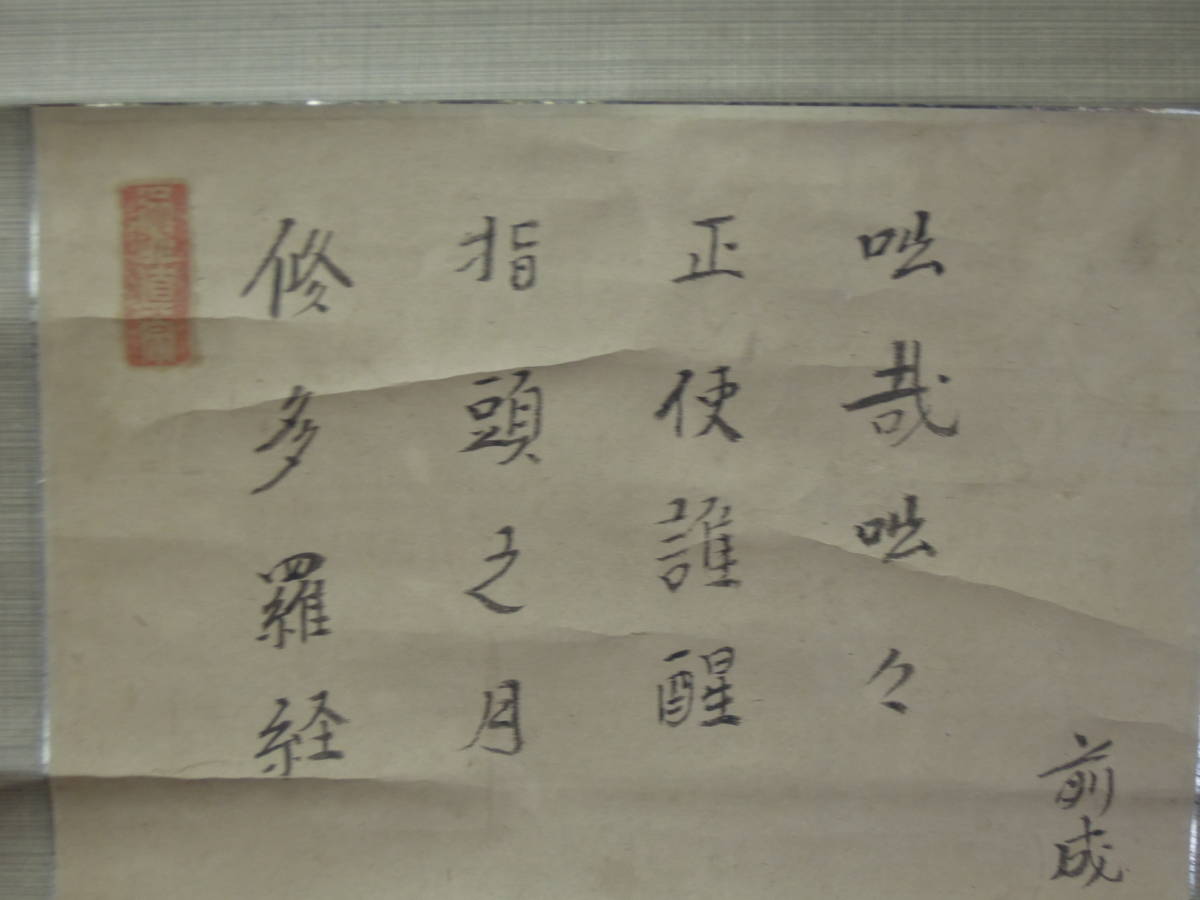 修多羅経
指頭之月
正使誰醒
咄哉咄々
前成